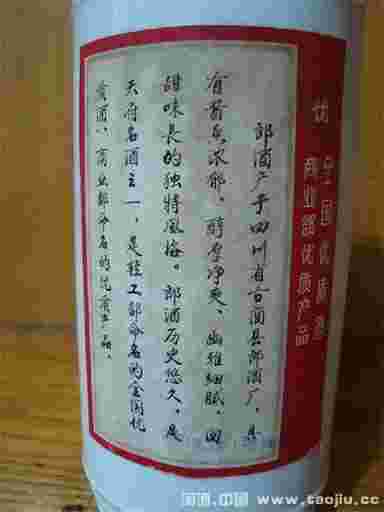 优
全国优质酒
商业部优质产品
郎酒产于四川省古蔺县郎酒厂，具
有酱香浓郁、醇厚净爽、幽雅细腻、回
甜味長的独特風格。郎酒历史悠久，是
天府名酒之一，是轻工部命名的全国优
质酒、商业部命名的优质产品。
淘酒.中国 www.taojiu.cc